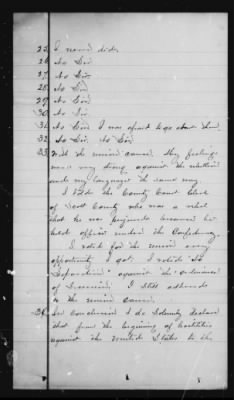 25. I never did.
26. No Sir
27. No Sir.
28. No Sir
29. No Sir.
30. No Sir.
31. No Sir I was afraid to go about them
32. No Sir. No Sir.
33. With the union cause. My feelings
was very strong against the rebellion
and my language the same way.
I told the County Court Clerk
of Scott County who was a rebel
that he was perjured because he
held office under the Confederacy.
I voted for the union every
opportunity I got. I voted "No
Separation" against the ordinance
of Secession. I still adhered
to the union cause.
In Conclusion I do Solemnly declare
that from the beginning of hostilities
against the United States to the